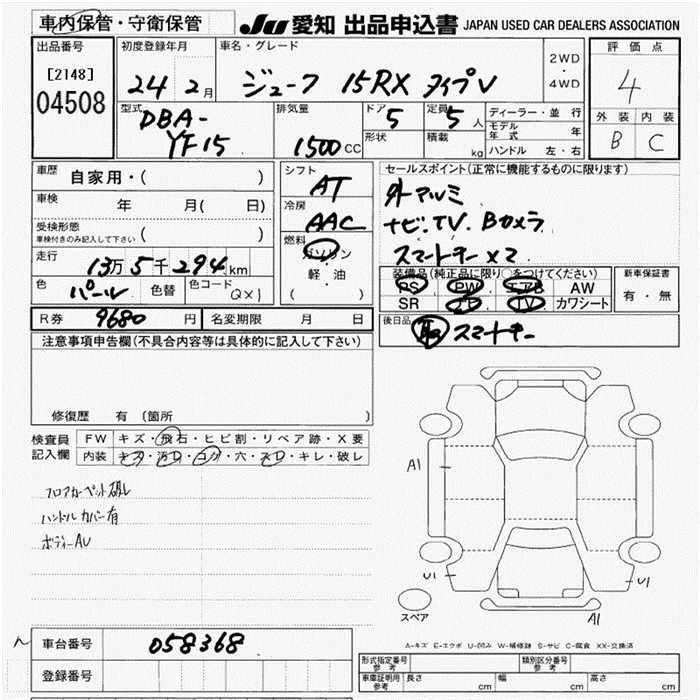 車内保管・守衛保管
JU 愛知 出品申込書 JAPAN USED CAR DEALERS ASSOCIATION
出品番号
[2148]
04508
初度登録年月
24 2月
車名・グレード
ジューク 15RX タイプV
2WD
・
4WD
評価点
4
外装 内装
B C
型式
DBA-
YF15
排気量
1500cc
ドア
5
形状
定員
5人
積載
kg
ディーラー・並行
モデル年式 年
ハンドル 左・右
車歴
自家用・( )
車検
年 月( 日)
受検形態
車検付きのみ記入して下さい ( )
走行
13万5千294km
色
パール
色替
色コード
QX1
シフト
AT
冷房
AAC
燃料
ガソリン
・
軽油
( )
セールスポイント(正常に機能するものに限ります)
外アルミ
ナビ.TV.Bカメラ
スマートキー×2
装備品(純正品に限り○をつけてください)
PS PW エアB AW
SR ナビ TV カワシート
新車保証書
有・無
後日品
取 スマートキー
R券 9680円
名変期限 月 日
注意事項申告欄(不具合内容等は具体的に記入して下さい)
修復歴 有 (箇所 )
検査員記入欄
FW キズ・飛石・ヒビ割・リペア跡・X要
内装 キズ・汚レ・コゲ・穴・スレ・キレ・破レ
フロアカーペット破レ
ハンドルカバー有
ボディーAU
A1
U1
U1
A1
スペア
A-キズ E-エクボ U-凹み W-補修跡 S-サビ C-腐食 XX-交換済
車台番号 058368
登録番号
形式指定番号
参考
類別区分番号
参考
車庫証明用
参考
長さ cm
幅 cm
高さ cm